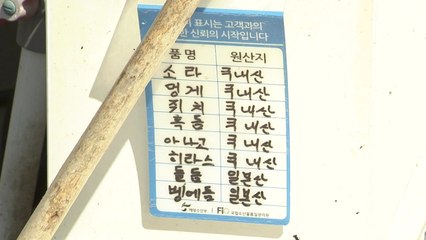 표시는 고객과의
신뢰의 시작입니다
품 명 원산지
소라 국내산
멍게 국내산
쥐치 국내산
흑돔 국내산
아나고 국내산
히라스 국내산
돌돔 일본산
벵에돔 일본산
해양수산부 국립수산물품질관리원